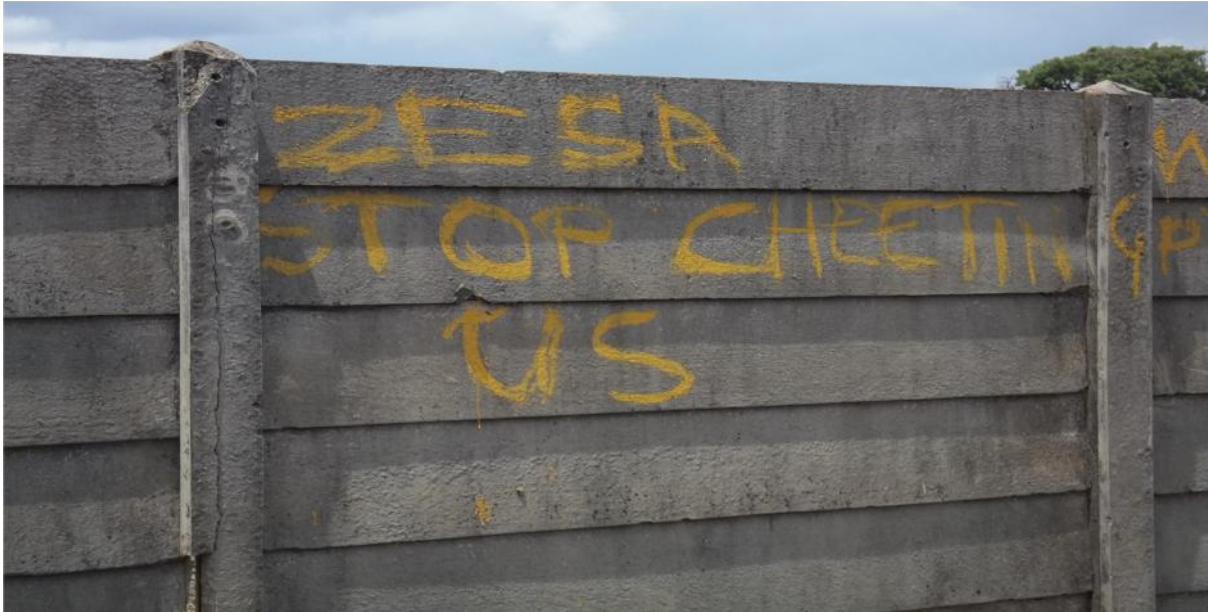 ZESA
STOP CHEETING
US